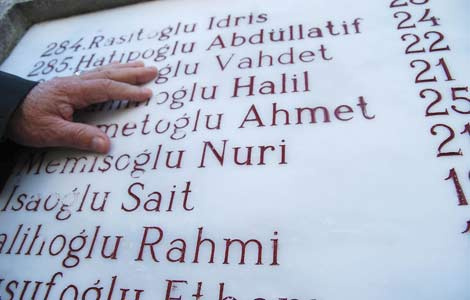 284. Raşitoğlu Idris 24
285. Hatipoğlu Abdüllatif 22
oğlu Vahdet 21
oğlu Halil 25
metoğlu Ahmet 21
Memişoğlu Nuri
Isaoğlu Sait
alihoğlu Rahmi
usufoğlu